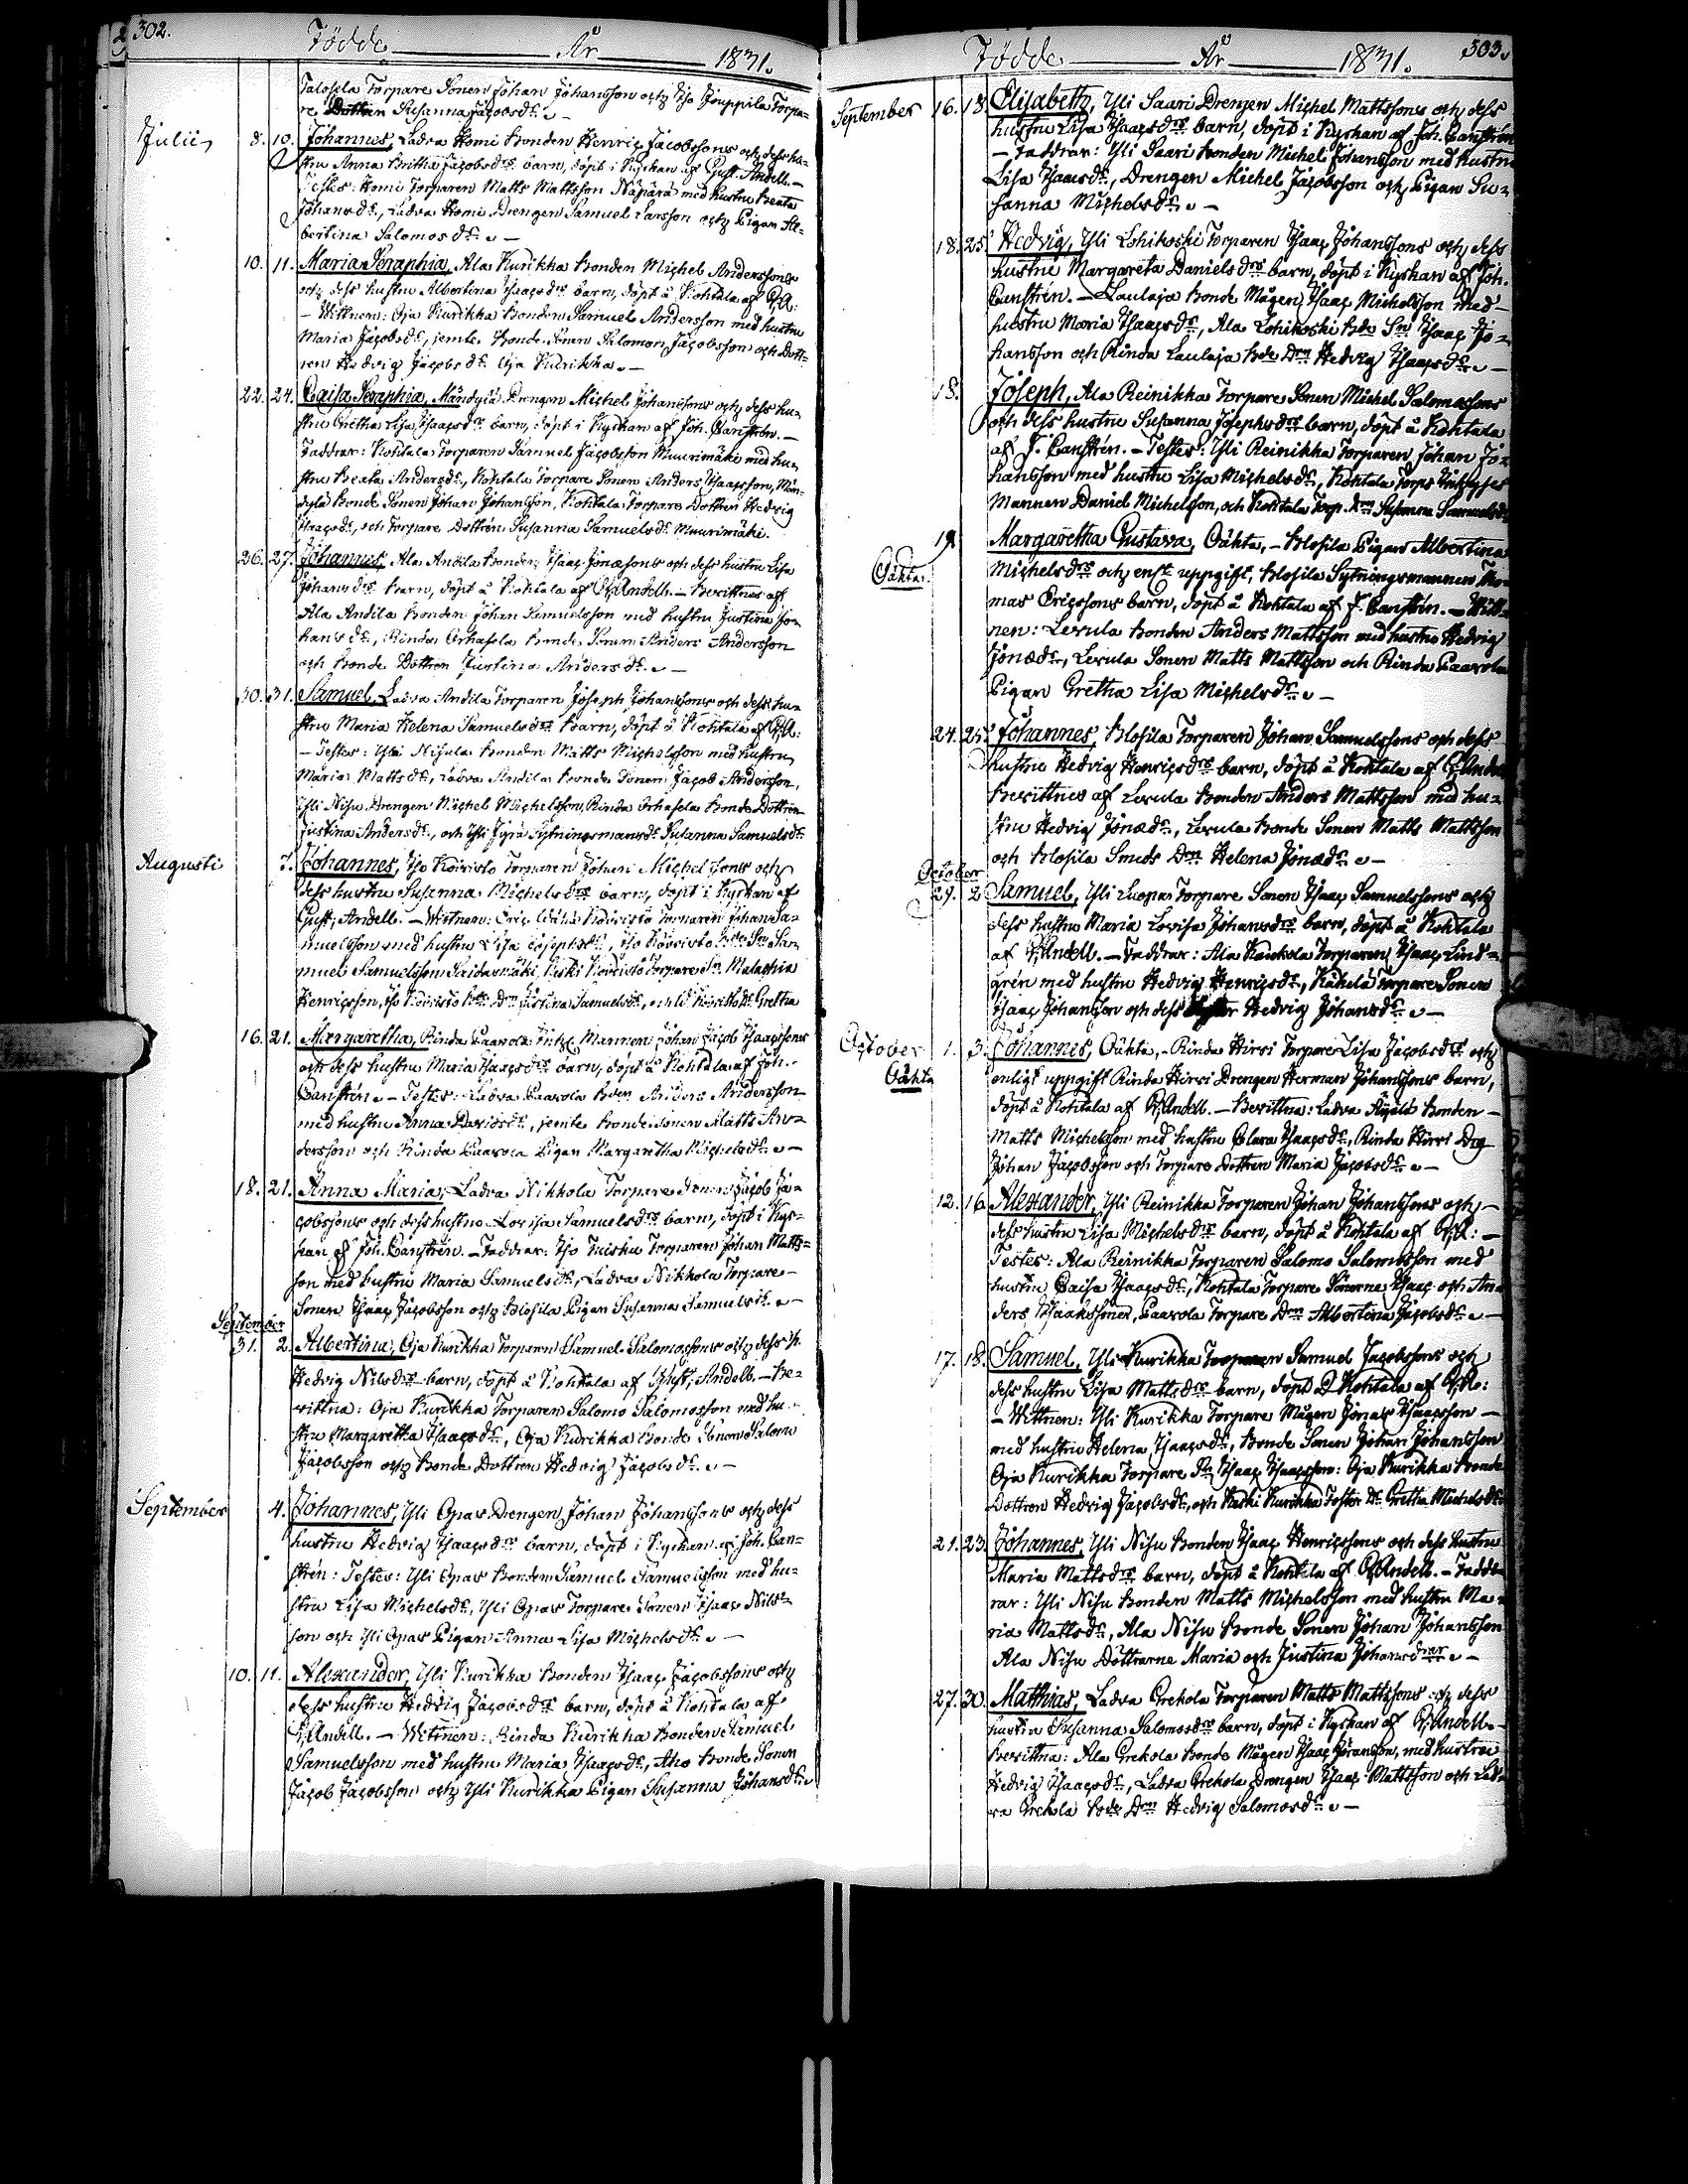 302.
Födde År 1831.
Talosela Torpare Sonen Johan Johansson och Iso Jouppila Torpa-
re Dottren Susanna Jacobsdr. —
Julii 8. 10. Johannes, Ladva Homi Bonden Henric Jacobssons och dess hu-
stru Anna Britha Jacobsdrs barn, döpt i Kyrkan af Gust. Andell. —
Testes: Homi Torparen Matts Mattsson Näpärä med hustru Beata
Johansdr., Ladva Homi Drengen Samuel Larsson och Pigan Al-
bertina Salomosdr. —
10. 11. Maria Seraphia, Ala Kurikka Bonden Michel Anderssons
och dess hustru Albertina Isaacsdrs barn, döpt å Kohtala af G. A:
— Wittnen: Oja Kurikka Bonden Samuel Andersson med hustru
Maria Jacobsdr., jemte Bonde Sonen Salomon Jacobsson och Dott-
ren Hedvig Jacobsdr. Oja Kurikka. —
22. 24. Caisa Seraphia, Mändylä Drengen Michel Johanssons och dess hu-
stru Gretha Lisa Isaacsdrs barn, döpt i Kyrkan af Joh. Canstrén. —
Faddrar: Kohtala Torparen Samuel Jacobsson Muurimäki med hu-
stru Beata Andersdr., Kohtala Torpare Sonen Anders Isaacsson, Män-
dylä Bonde Sonen Johan Johansson, Kohtala Torpare Dottren Hedvig
Isaacsdr., och Torpare Dottren Susanna Samuelsdr. Muurimäki.
26. 27. Johannes, Ala Andila Bonden Isaac Jonasons och dess hustru Lisa
Johansdrs barn, döpt å Kohtala af G. Andell. — Bevittnes af
Ala Andila Bonden Johan Samuelsson med hustru Justina Jo-
hansdr., Rinda Orhasela Bonde Sonen Anders Andersson
och Bonde Dottren Justina Andersdr. —
30. 31. Samuel, Ladva Andila Torparen Joseph Johanssons och dess hu-
stru Maria Helena Samuelsdrs barn, döpt å Kohtala af G. A:
— Testes: Yli Nisula Bonden Matts Michelsson med hustru
Maria Mattsdr., Ladva Andila Bonde Sonen Jacob Andersson,
Yli Nisu Drengen Michel Michelsson, Rinda Orhasela Bonde Dottren
Justina Andersdr., och Yli Jyrä Sytningsmansdr. Susanna Samuelsdr.
Augusti 7. Johannes, Iso Koivisto Torparen Johan Michelssons och
dess hustru Susanna Michelsdrs barn, döpt i Kyrkan af
Gust. Andell. — Wittnen: Koivisto Torparen Johan Sa-
muelsson med hustru Lisa Josephsdr., Iso Koivisto Bde Sn Sa-
muel Samuelsson Saidasmäki, Koivisto Torpare Sn Malachia
Henricsson, Iso Koivisto Bde Drn Justina Samuelsdr., Gretha
16. 21. Margaretha, Rinda Paavola Inhys Mannen Johan Jacob Isaacssons
och dess hustru Maria Isaacsdrs barn, döpt å Kohtala af Joh.
Canstrén. — Testes: Ladva Paavola Bden Anders Andersson
med hustru Anna Davidsdr., jemte Bonde Sonen Matts An-
dersson och Rinda Paavola Pigan Margaretha Michelsdr. —
18. 21. Anna Maria, Ladva Nikkola Torpare Sonen Jacob Ja-
cobssons och dess hustru Lovisa Samuelsdrs barn, döpt i Kyr-
kan af Joh. Canstrén. — Faddrar: Iso Tuisku Torparen Johan Matts-
son med hustru Maria Samuelsdr., Ladva Nikkola Torpare
Sonen Isaac Jacobsson och Klosila Pigan Susanna Samuelsdr. —
September
31. 2. Albertina, Oja Kurikka Torparen Samuel Salomossons och dess h.
Hedvig Nilsdrs barn, döpt å Kohtala af Gust. Andell. — Be-
vittna: Oja Kurikka Torparen Salomo Salomosson med hu-
stru Margaretha Isaacsdr., Oja Kurikka Bonde Sonen Salomo
Jacobsson och Bonde Dottren Hedvig Jacobsdr. —
September 4. Johannes, Yli Opas Drengen Johan Johanssons och dess
hustru Hedvig Isaacsdrs barn, döpt i Kyrkan af Joh. Can-
strén: Testes: Yli Opas Bonden Samuel Samuelsson med hu-
stru Lisa Michelsdr., Yli Opas Torpare Sonen Isaac Nils-
son och Yli Opas Pigan Anna Lisa Michelsdr. —
10. 11. Alexander, Yli Kurikka Bonden Isaac Jacobssons och
dess hustru Hedvig Jacobsdrs barn, döpt å Kohtala af
G. Andell. — Wittnen: Rinda Kurikka Bonden Samuel
Samuelsson med hustru Maria Isaacsdr., Aho Bonde Sonen
Jacob Jacobsson och Yli Kurikka Pigan Susanna Johansdr.
303.
Födde År 1831.
September 16. 18. Elisabeth, Yli Saari Drengen Michel Mattssons och dess
hustru Lisa Isaacsdrs barn, döpt i Kyrkan af Joh. Canstrén
— Faddrar: Yli Saari Bonden Michel Johansson med hustru
Lisa Isaacsdr., Drengen Michel Jacobsson och Pigan Su-
sanna Michelsdr. —
18. 25. Hedvig, Yli Lohikoski Torparen Isaac Johanssons och dess
hustru Margareta Danielsdrs barn, döpt i Kyrkan af Joh.
Canstrén. — Laulaja Bonde Mågen Isaac Michelsson med
hustru Maria Isaacsdr., Ala Lohikoski Bde Sn Isaac Jo-
hansson och Rinda Laulaja Bde Drn Hedvig Isaacsdr. —
18. Joseph, Ala Reinikka Torpare Sonen Michel Salomossons
och dess hustru Susanna Josephsdrs barn, döpt å Kohtala
af J. Canstrén. — Testes: Yli Reinikka Torparen Johan Jo-
hansson med hustru Lisa Michelsdr., Kohtala Torps Inhyses
Mannen Daniel Michelsson, och Kohtala Torp. Drn Susanna Samuelsdr.
Oäkta. 19. Margaretha Gustava, Oäkta, — Klosila Pigan Albertina
Michelsdrs och enl. uppgift, Klosila Sytningsmannen Tho-
mas Ericssons barn, döpt å Kohtala af J. Canstrén. — Witt-
nen: Levula Bonden Anders Mattsson med hustru Hedvig
Jonædr., Levula Sonen Matts Mattsson och Rinda Paavola
Pigan Gretha Lisa Michelsdr. —
24. 25. Johannes, Klosila Torparen Johan Samuelssons och dess
hustru Hedvig Henricsdrs barn, döpt å Kohtala af G. Andell
Bevittnes af Levula Bonden Anders Mattsson med hu-
stru Hedvig Jonædr., Levula Bonde Sonen Matts Mattsson
och Klosila Smeds Drn Helena Jonædr. —
October
29. 2 Samuel, Yli Luopa Torpare Sonen Isaac Samuelssons och
dess hustru Maria Lovisa Johansdrs barn, döpt å Kohtala
af G. Andell. — Faddrar: Ala Kankola Torparen Isaac Lind-
grén med hustru Hedvig Henricsdr., Käkelä Torpare Sonen
Isaac Johansson och dess Syster Hedvig Johansdr. —
October 1. 3. Johannes, Oäkta, — Rinda Hirvi Torpare Lisa Jacobsdrs och
Oäkta enligt uppgift Rinda Hirvi Drengen Herman Johanssons barn,
döpt å Kohtala af G. Andell. — Bevittna: Ladva Äijälä Bonden
Matts Michelsson med hustru Clara Isaacsdr., Rinda Hirvi Drg
Johan Jacobsson och Torpare Dottren Maria Jacobsdr. —
12. 16. Alexander, Yli Reinikka Torparen Johan Johanssons och
dess hustru Lisa Michelsdrs barn, döpt å Kohtala af G. A: —
Testes: Ala Reinikka Torparen Salomo Salomosson med
hustru Caisa Isaacsdr., Kohtala Torpare Sönerne Isaac och An-
ders Isaakssoner, Paavola Torpare Drn Albertina Jacobsdr. —
17. 18. Samuel, Yli Kurikka Torparen Samuel Jacobssons och
dess hustru Lisa Mattsdrs barn, döpt å Kohtala af G. A:
— Wittnen: Yli Kurikka Torpare Mågen Jonas Isaacsson —
med hustru Helena Isaacsdr., Bonde Sonen Johan Johansson
Oja Kurikka Torpare Sn Isaac Isaacsson: Oja Kurikka Bonde
Dottren Hedvig Jacobsdr., och Kurikka Gretha Michelsdr.
21. 23. Johannes, Yli Nisu Bonden Isaac Henricssons och dess hustru
Maria Mattsdrs barn, döpt å Kohtala af G. Andell. — Fadd-
rar: Yli Nisu Bonden Matts Michelsson med hustru Ma-
ria Mattsdr., Ala Nisu Bonde Sonen Johan Johansson
Ala Nisu Döttrarne Maria och Justina Johansdrar —
27. 30. Mathias, Ladva Grekola Torparen Matts Mattssons och dess
hustru Susanna Salomosdrs barn, döpt i Kyrkan af G. Andell. —
Bevittna: Ala Grekola Bonde Mågen Isaac Göransson, med hustru
Hedvig Isaacsdr., Ladva Grekola Drengen Isaac Mattsson och Lad-
va Grekola Bde Drn Hedvig Salomosdr. —